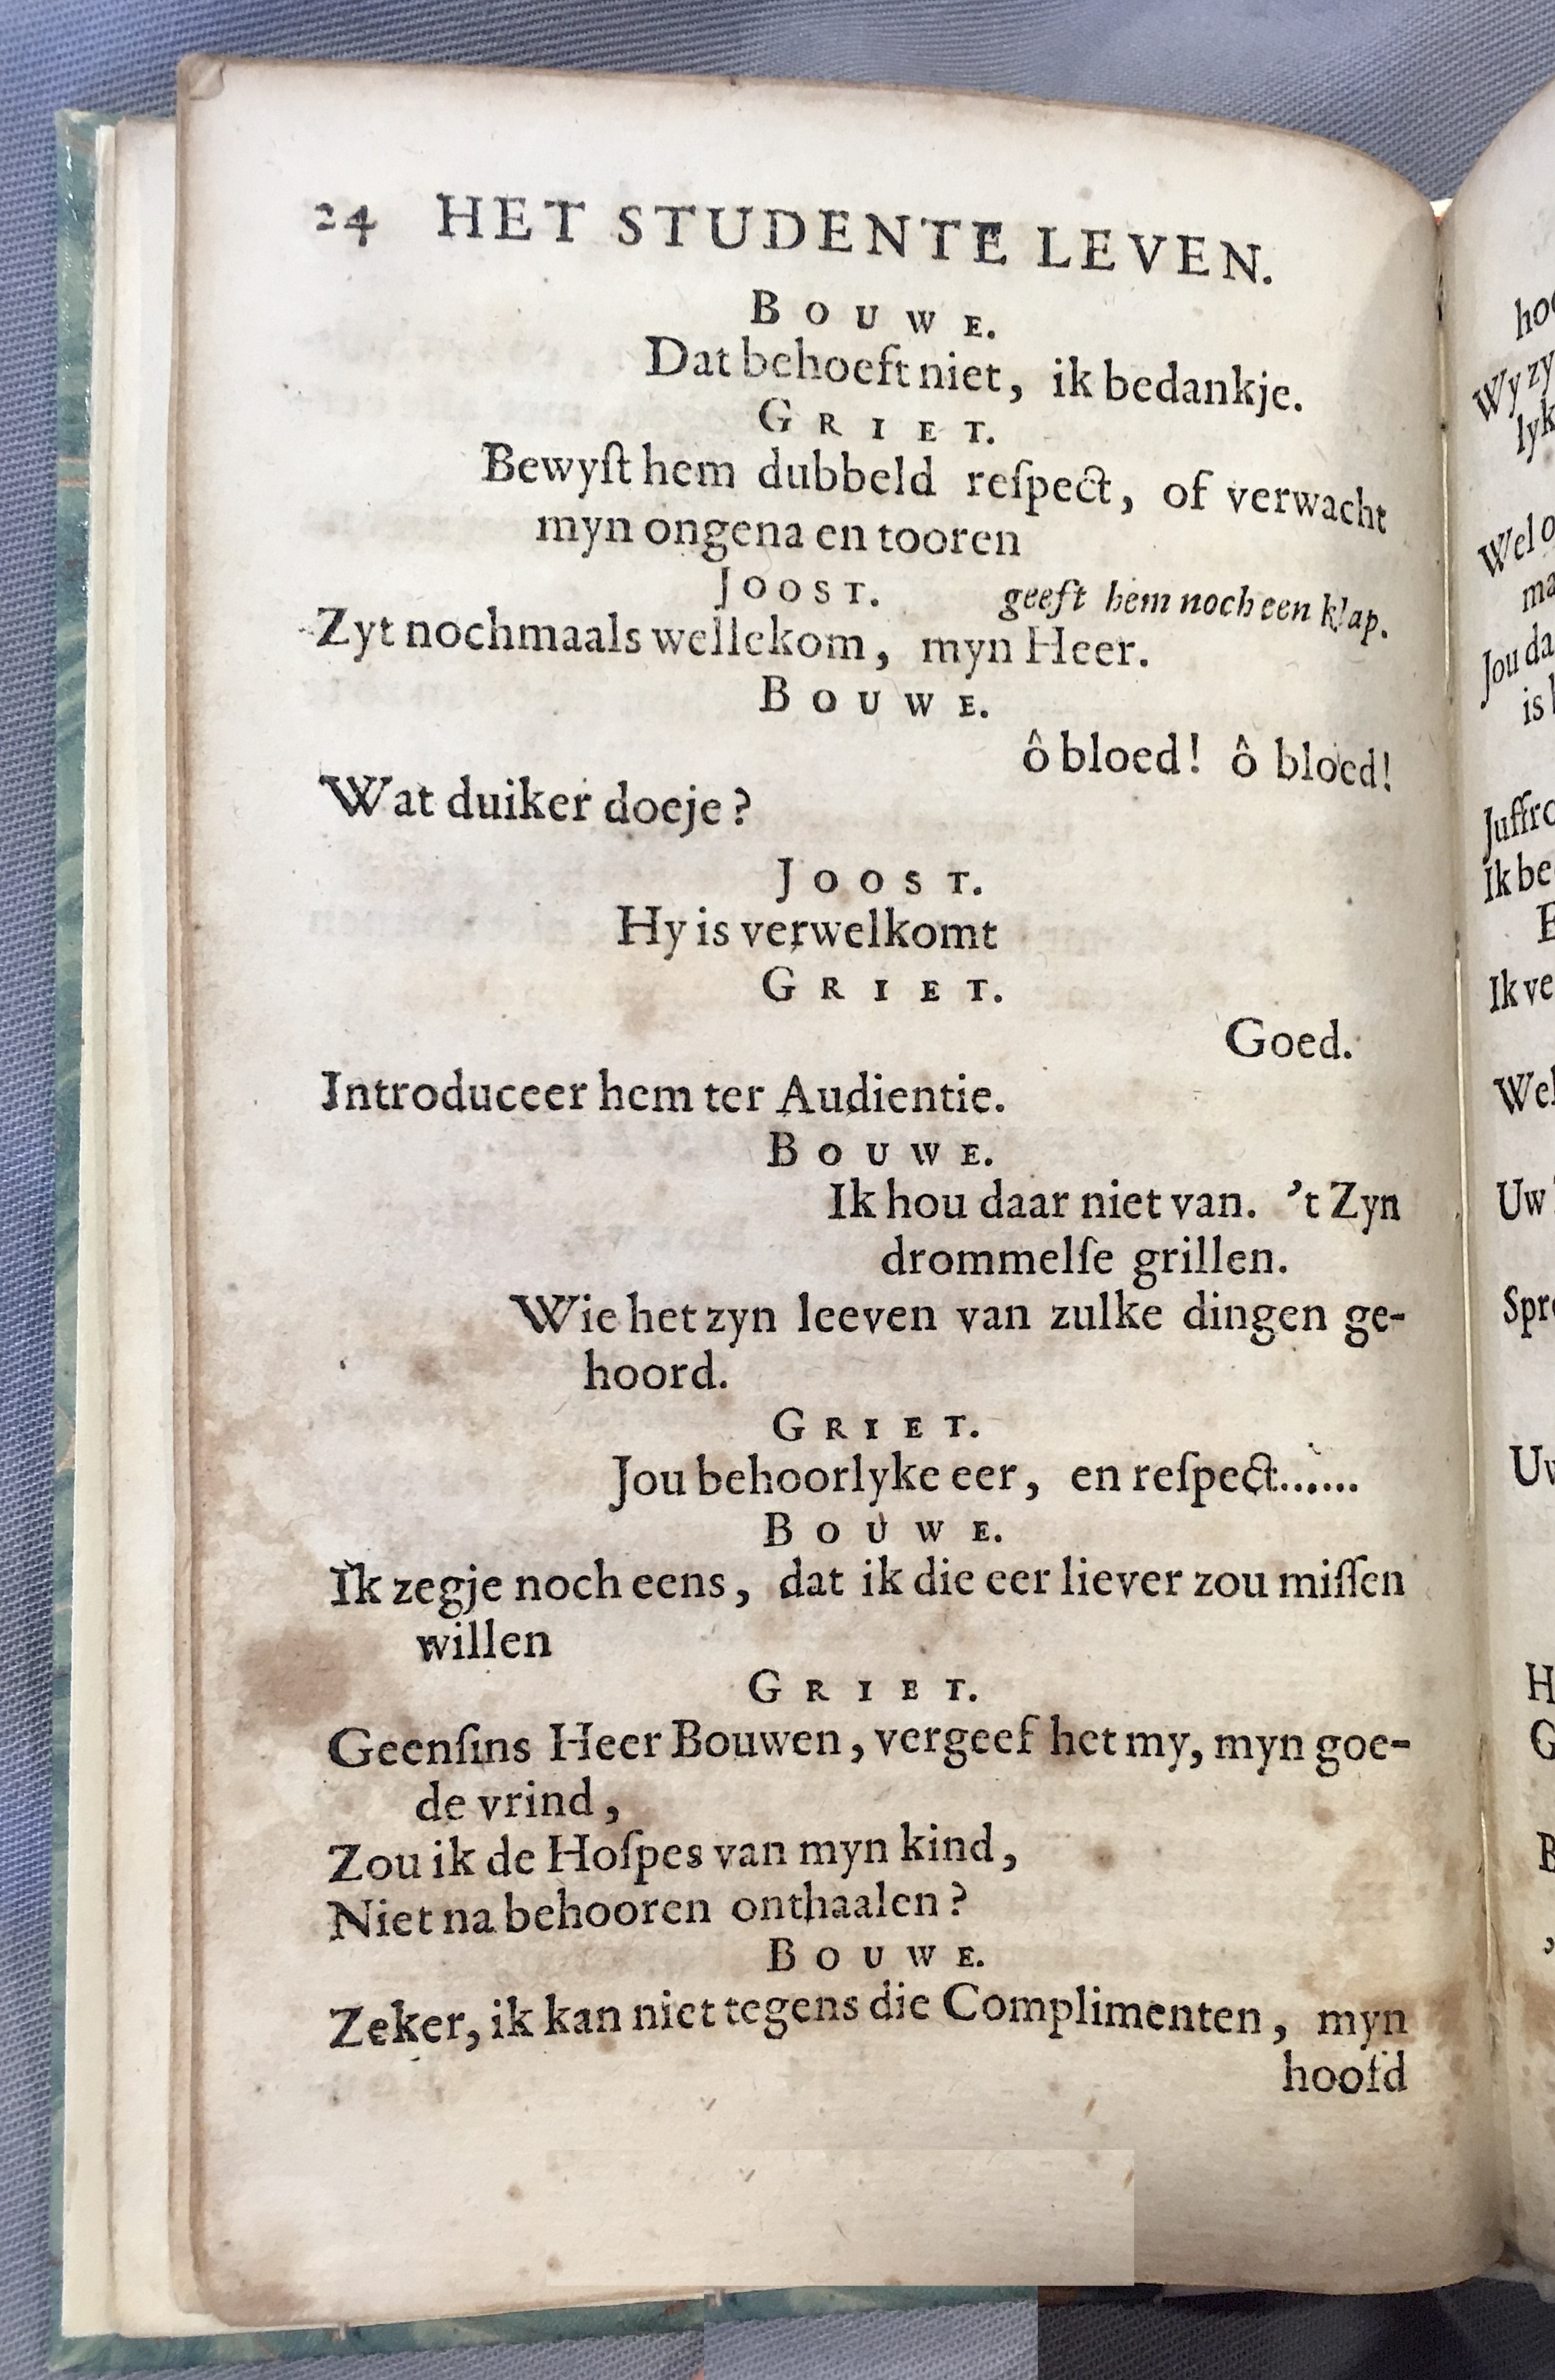 24 HET STUDENTE LEVEN.
BOUWE.
Dat behoeft niet, ik bedankje.
GRIET.
Bewyſt hem dubbeld reſpect, of verwacht
myn ongena en tooren
JOOST. geeft hem noch een klap.
Zyt nochmaals wellekom, myn Heer.
BOUWE.
ô bloed! ô bloed!
Wat duiker doeje?
JOOST.
Hy is verwelkomt
GRIET.
Goed.
Introduceer hem ter Audientie.
BOUWE.
Ik hou daar niet van. 't Zyn
drommelſe grillen.
Wie het zyn leeven van zulke dingen ge-
hoord.
GRIET.
Jou behoorlyke eer, en reſpect......
BOUWE.
Ik zegje noch eens, dat ik die eer liever zou miſſen
willen
GRIET.
Geenſins Heer Bouwen, vergeef het my, myn goe-
de vrind,
Zou ik de Hoſpes van myn kind,
Niet na behooren onthaalen?
BOUWE.
Zeker, ik kan niet tegens die Complimenten, myn
hoofd
hoo
Wy zy
lyk
Wel o
ma
Jou da
is
Juffro
Ik be
E
Ik ve
Wel
Uw
Spre
Uw
H
G
B